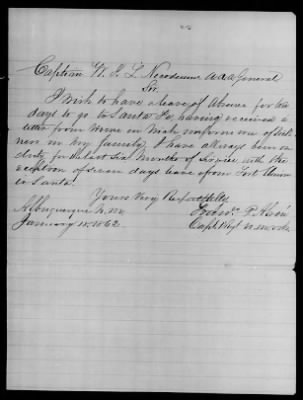 Captain W. J. L. Nicodemus A.A.A General
Sir.
I Wish to have a leave of Absence for ten
days to go to Santa Fe, having received a
letter from Home in Which informs me of sick
ness in my family, I have always been on
duty for the last six Months of Service with the
exception of seven days leave from Fort Union
to Santa
Yours Very Respectfully
Albuquerque N. M.
January 18. 1862
Capt.